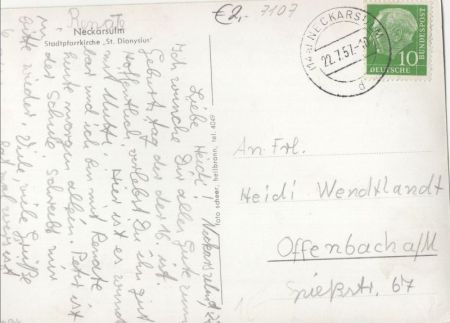 Renate
Neckarsulm
Stadtpfarrkirche „St. Dionysius"
€2,- 7107
NECKARSULM
22.7.57.
d
10
DEUTSCHE
BUNDESPOST
Liebe Heidi!
Ich wünsche Dir alles Gute zum
Geburtstag der der 16. ist.
Hoffentlich verlebst Du ihn gut
mit Mutti. Hier ist es
und ich bin mit Renate
heute morgen allein. Peter ist
in der Schule. Schreibt mir
bitte wieder. Viele viele Grüße
foto scheer, heilbronn, tel. 4069
An Frl.
Heidi Wendtlandt
Offenbach a/M
Spießstr. 67